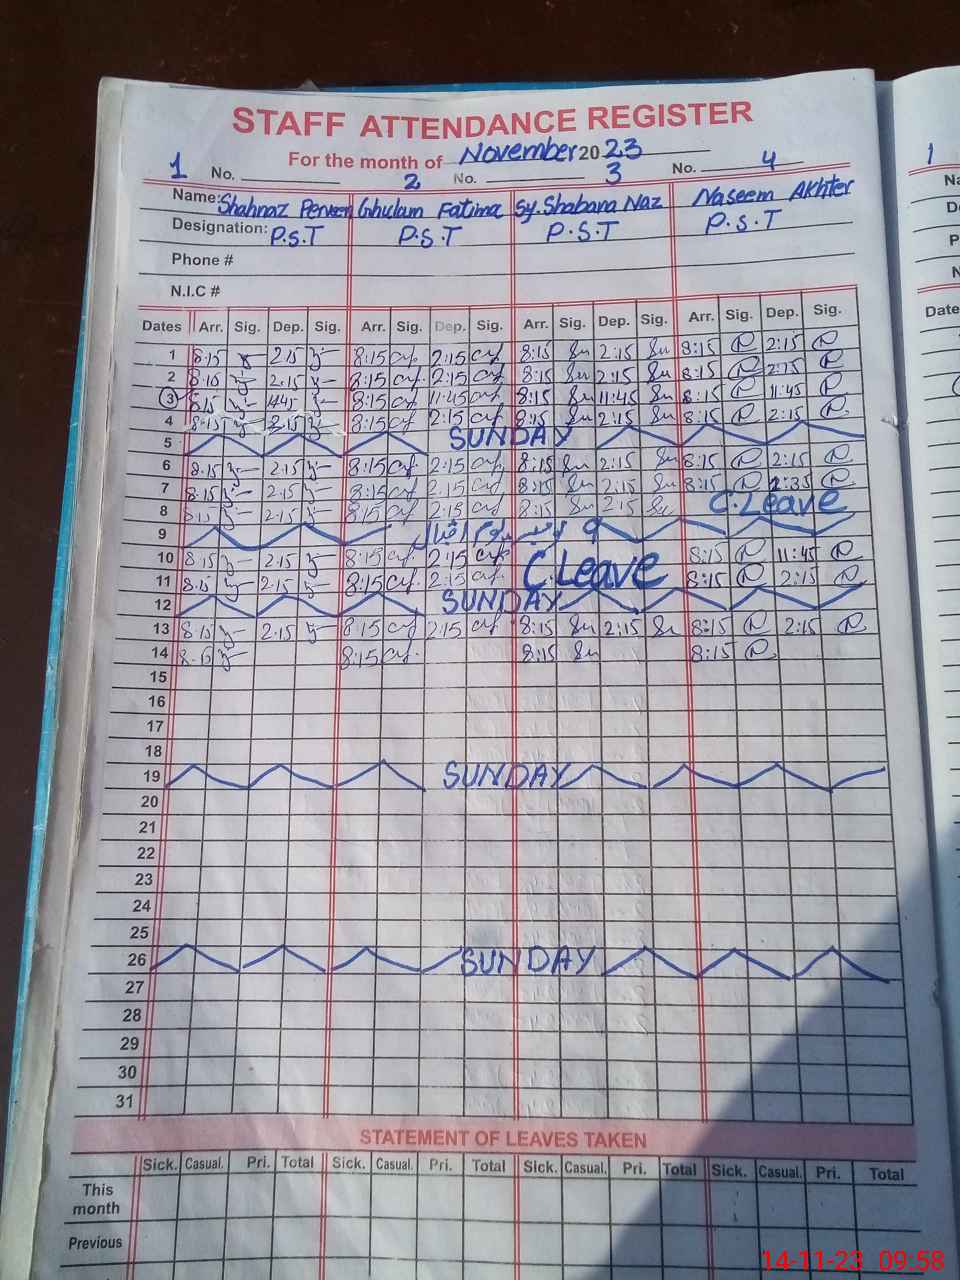 STAFF ATTENDANCE REGISTER
For the month of November 2023
1 No. 2 No. 3 No. 4
Name: Shahnaz Perveen Ghulam Fatima Sy. Shabana Naz Naseem Akhter
Designation: P.S.T P.S.T P.S.T P.S.T
Phone #
N.I.C #
Dates Arr. Sig. Dep. Sig. Arr. Sig. Dep. Sig. Arr. Sig. Dep. Sig. Arr. Sig. Dep. Sig.
1 8:15 2:15 8:15 2:15 8:15 2:15 8:15 2:15
2 8:15 2:15 8:15 2:15 8:15 2:15 8:15 2:15
3 8:15 8:15 11:45 8:15 11:45 8:15 11:45
4 8:15 2:15 8:15 2:15 8:15 2:15 8:15 2:15
5 SUNDAY
6 8:15 2:15 8:15 2:15 8:15 2:15 8:15 2:15
7 8:15 2:15 8:15 2:15 8:15 2:15 8:15
8 8:15 2:15 8:15 2:15 8:15 2:15 C.Leave
9 یوم اقبال
10 8:15 2:15 8:15 2:15 C.Leave 8:15 11:45
11 8:15 2:15 8:15 2:15 8:15 2:15
12 SUNDAY
13 8:15 2:15 8:15 2:15 8:15 2:15 8:15 2:15
14 8:15 8:15 8:15
15
16
17
18
19 SUNDAY
20
21
22
23
24
25
26 SUNDAY
27
28
29
30
31
STATEMENT OF LEAVES TAKEN
Sick. Casual. Pri. Total Sick. Casual. Pri. Total Sick. Casual. Pri. Total Sick. Casual. Pri. Total
This
month
Previous
1
Na
De
P
N
Date
14-11-23 09:58